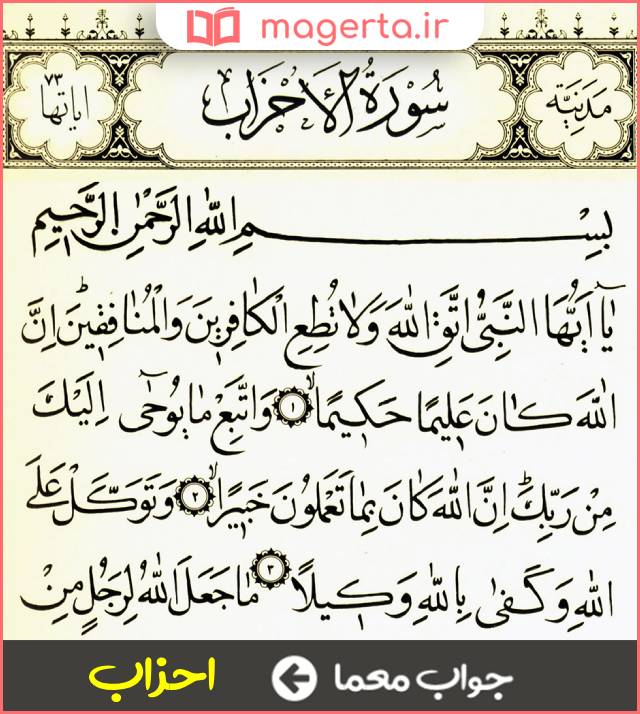 magerta.ir
مدنیة
سُورَةُ الأَحْزَاب
٧٣
ایاتها
بِسْمِ اللهِ الرَّحْمٰنِ الرَّحِيمِ
يَا أَيُّهَا النَّبِيُّ اتَّقِ اللهَ وَلَا تُطِعِ الْكَافِرِينَ وَالْمُنَافِقِينَ ۗ إِنَّ
اللهَ كَانَ عَلِيمًا حَكِيمًا ۙ ١ وَاتَّبِعْ مَا يُوحَىٰ إِلَيْكَ
مِنْ رَبِّكَ ۗ إِنَّ اللهَ كَانَ بِمَا تَعْمَلُونَ خَبِيرًا ۙ ٢ وَتَوَكَّلْ عَلَى
اللهِ وَكَفَىٰ بِاللهِ وَكِيلًا ٣ مَا جَعَلَ اللهُ لِرَجُلٍ مِنْ
جواب معما احزاب